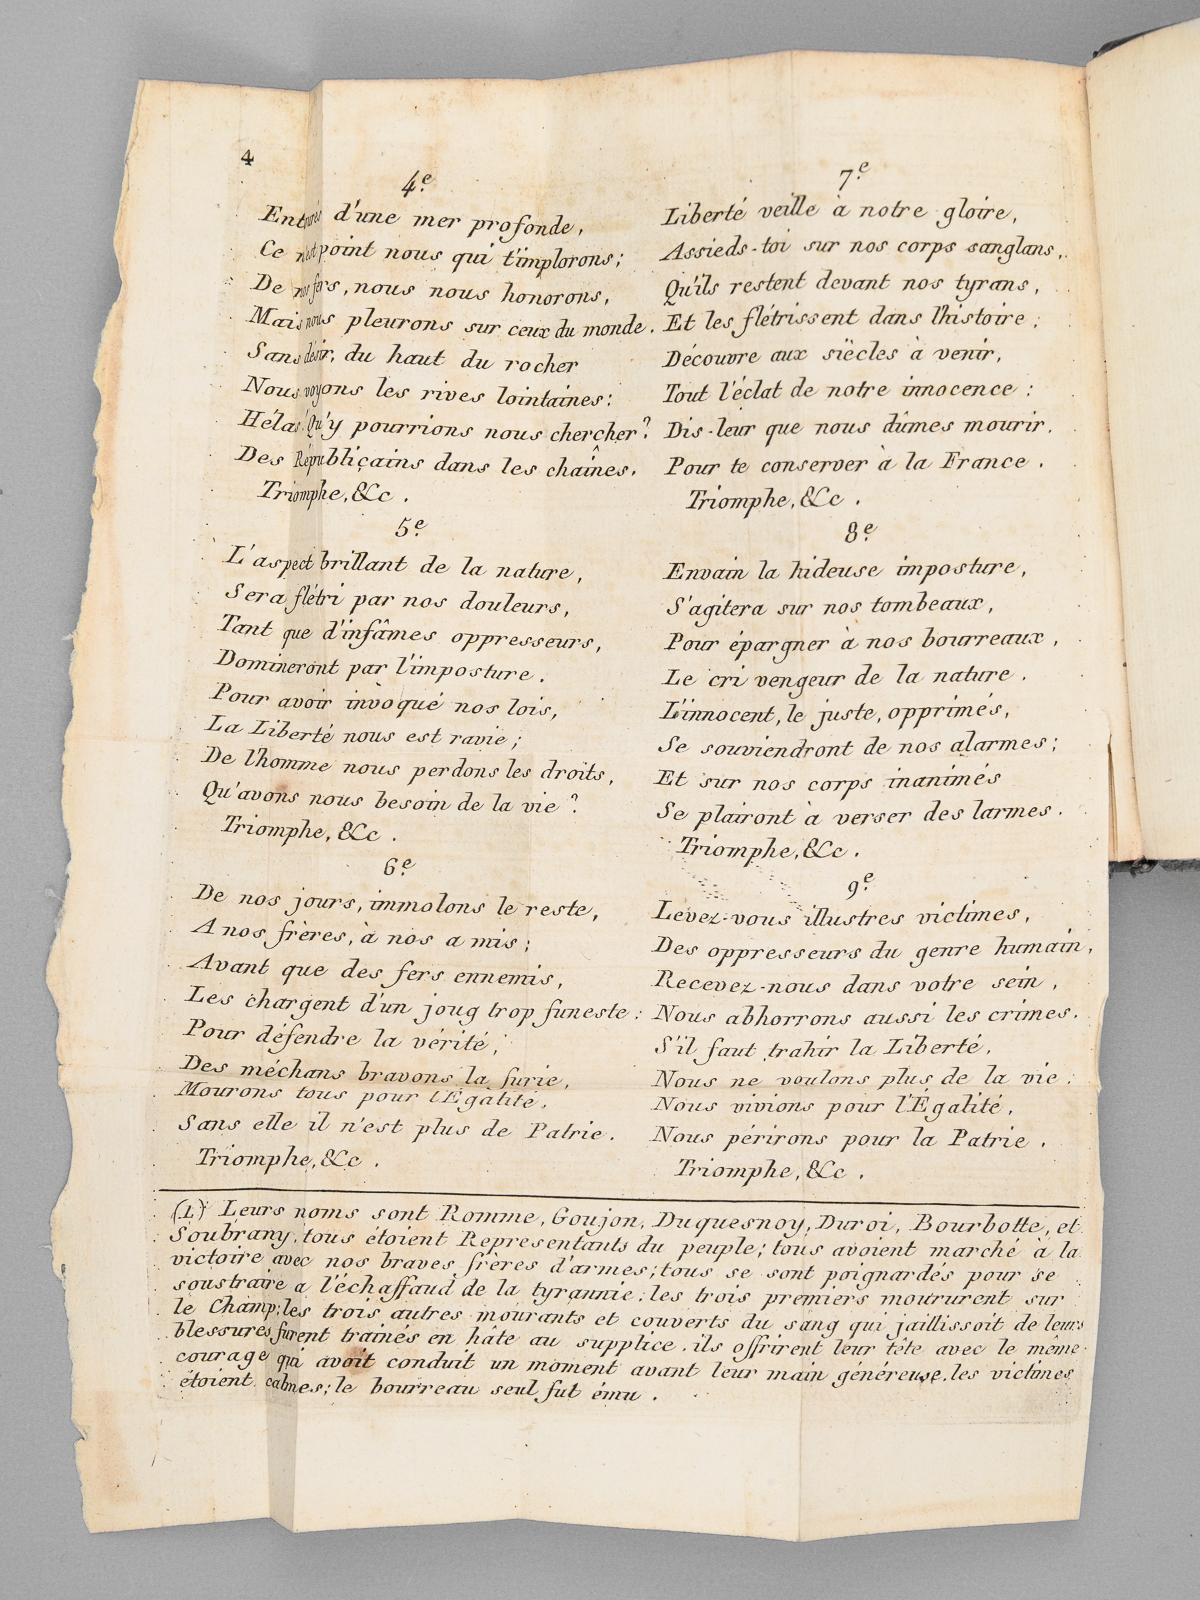 4
4.e
Entourés d'une mer profonde,
Ce n'est point nous qui t'implorons;
De nos fers, nous nous honorons,
Mais nous pleurons sur ceux du monde.
Sans désir, du haut du rocher
Nous voyons les rives lointaines:
Hélas! Qu'y pourrions nous chercher?
Des Républiçains dans les chaînes.
Triomphe, &c.
5.e
L'aspect brillant de la nature,
Sera flétri par nos douleurs,
Tant que d'infâmes oppresseurs,
Domineront par l'imposture.
Pour avoir invoqué nos lois,
La Liberté nous est ravie;
De l'homme nous perdons les droits,
Qu'avons nous besoin de la vie?
Triomphe, &c.
6.e
De nos jours, immolons le reste,
A nos frères, à nos amis;
Avant que des fers ennemis,
Les chargent d'un joug trop funeste:
Pour défendre la vérité,
Des méchans bravons la furie,
Mourons tous pour l'Égalité,
Sans elle il n'est plus de Patrie.
Triomphe, &c.
7.e
Liberté veille à notre gloire,
Assieds-toi sur nos corps sanglans,
Qu'ils restent devant nos tyrans,
Et les flétrissent dans l'histoire;
Découvre aux siècles à venir,
Tout l'éclat de notre innocence:
Dis-leur que nous dûmes mourir,
Pour te conserver à la France.
Triomphe, &c.
8.e
Envain la hideuse imposture,
S'agitera sur nos tombeaux,
Pour épargner à nos bourreaux,
Le cri vengeur de la nature.
L'innocent, le juste, opprimés,
Se souviendront de nos alarmes;
Et sur nos corps inanimés
Se plairont à verser des larmes.
Triomphe, &c.
9.e
Levez-vous illustres victimes,
Des oppresseurs du genre humain,
Recevez-nous dans votre sein,
Nous abhorrons aussi les crimes.
S'il faut trahir la Liberté,
Nous ne voulons plus de la vie:
Nous vivions pour l'Égalité,
Nous périrons pour la Patrie.
Triomphe, &c.
(1) Leurs noms sont Romme, Goujon, Duquesnoy, Duroi, Bourbotte, et
Soubrany, tous étoient Representants du peuple; tous avoient marché à la
victoire avec nos braves frères d'armes; tous se sont poignardés pour se
soustraire a l'échaffaud de la tyrannie; les trois premiers moururent sur
le Champ; les trois autres mourants et couverts du sang qui jaillissoit de leurs
blessures, furent trainés en hâte au supplice. ils offrirent leur tête avec le même
courage qui avoit conduit un moment avant leur main généreuse. les victimes
étoient calmes; le bourreau seul fut ému.